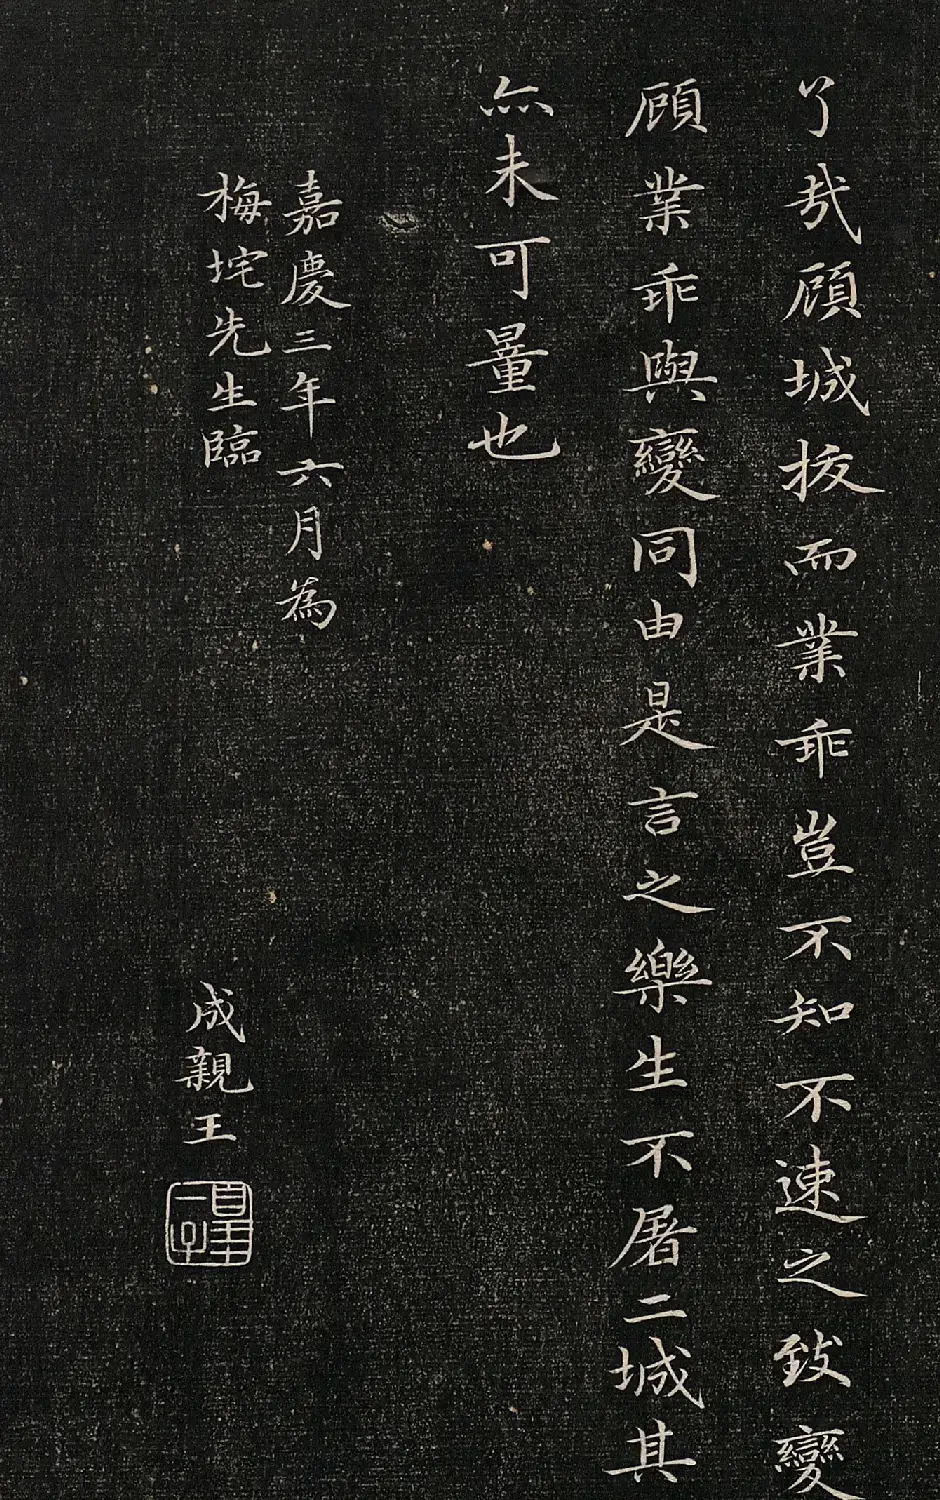 了哉頋城拔而業乖豈不知不速之致變
頋業乖與變同由是言之樂生不屠二城其
亦未可量也
嘉慶三年六月為
梅垞先生臨
成親王
皇十一子